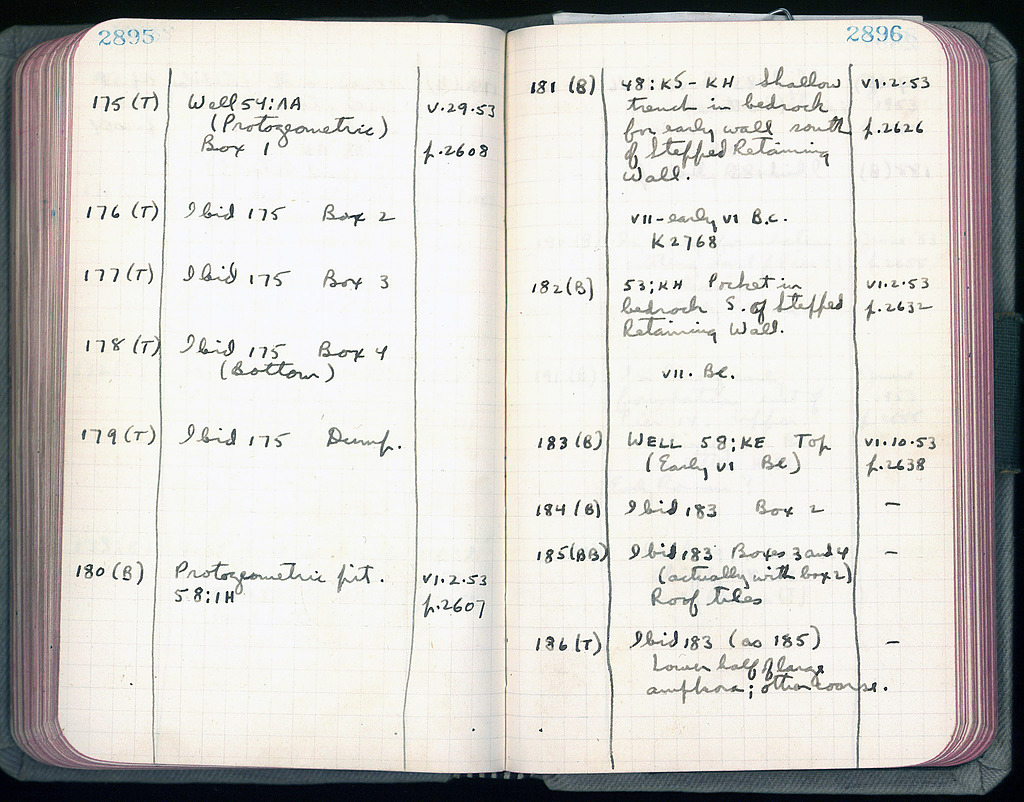 2895
175 (T) Well 54:ΛA V.29.53
(Protogeometric)
Box 1 p.2608
176 (T) Ibid 175 Box 2
177 (T) Ibid 175 Box 3
178 (T) Ibid 175 Box 4
(Bottom)
179 (T) Ibid 175 Dump.
180 (B) Protogeometric pit. VI.2.53
58:IH p.2607
2896
181 (B) 48:KS-KH Shallow VI.2.53
trench in bedrock
for early wall south p.2626
of Stepped Retaining
Wall.
VII-early VI B.C.
K2768
182 (B) 53:KH Pocket in VI.2.53
bedrock S. of Stepped p.2632
Retaining Wall.
VII. BC.
183 (B) WELL 58:KE Top VI.10.53
(Early VI BC) p.2638
184 (B) Ibid 183 Box 2 –
185 (BB) Ibid 183 Boxes 3 and 4 –
(actually with box 2)
Roof tiles
186 (T) Ibid 183 (as 185) –
Lower half of large
amphora; other coarse.